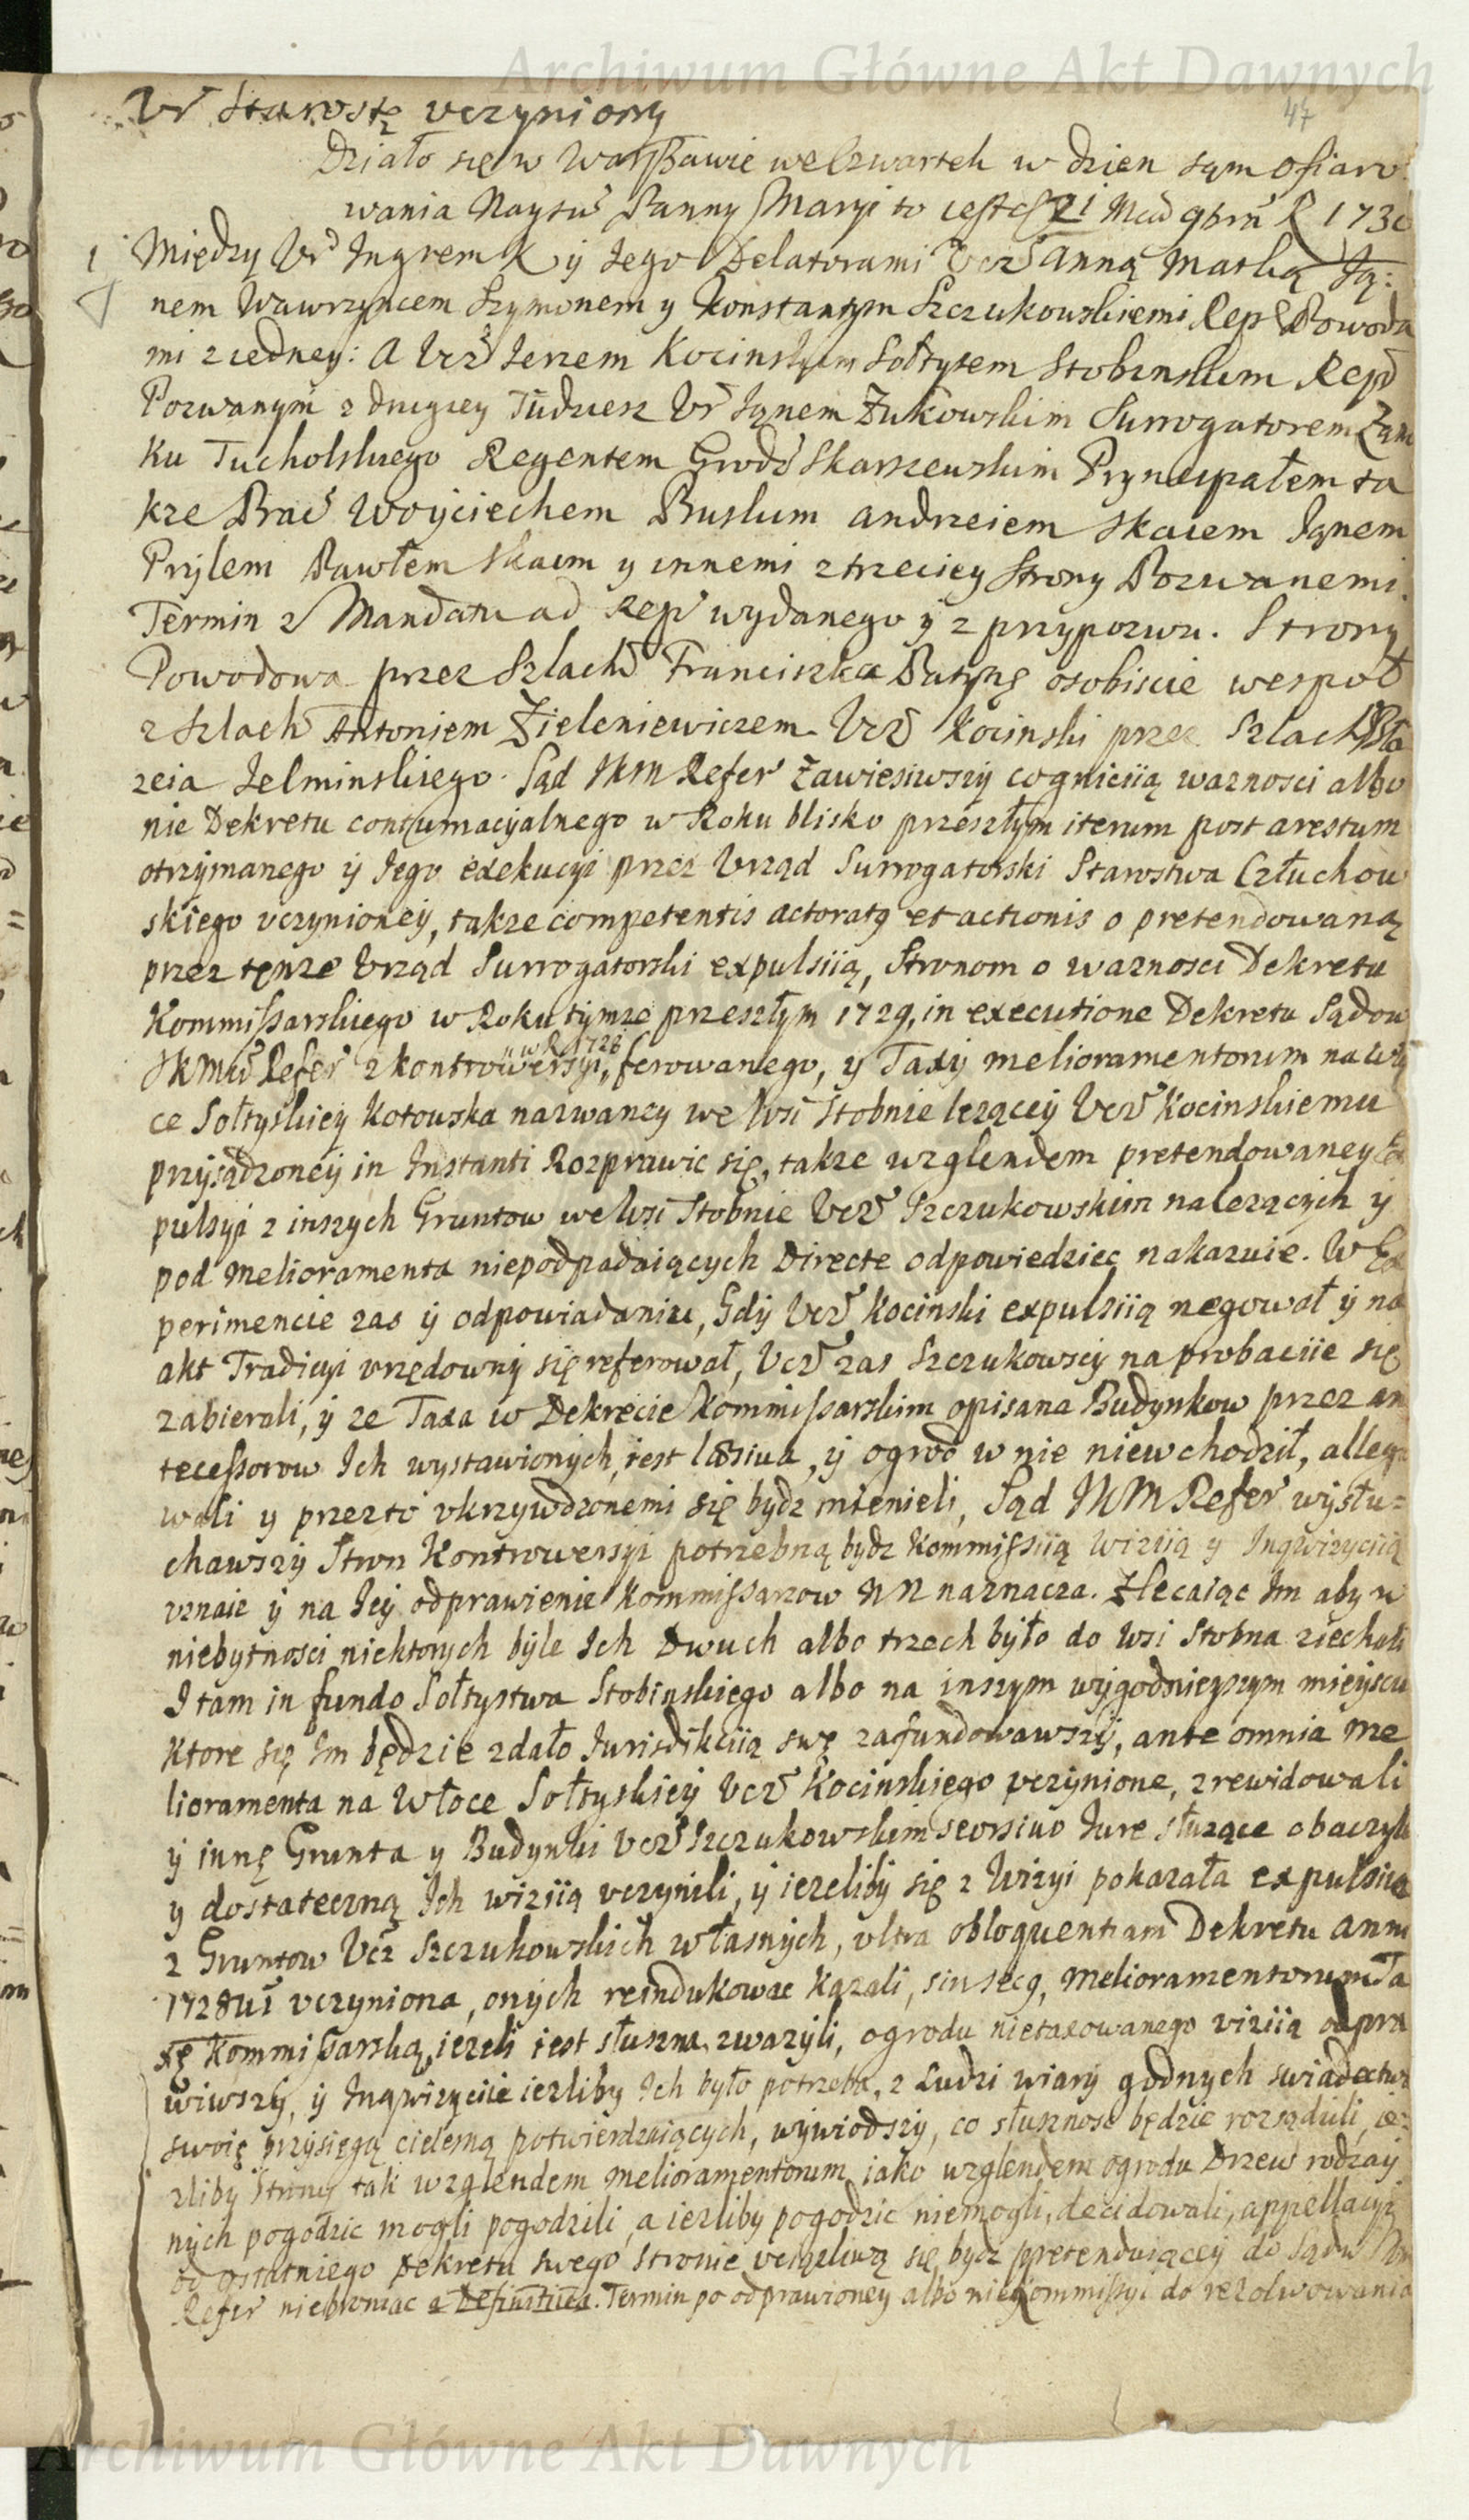 Archiwum Główne Akt Dawnych
47
Ur Starostę uczyniony
Działo się w Warszawie we Czwartek w dzien sąm Ofiaro
wania Nayśw Panny Maryi to iest 21 Mca 9bra R 1730
1 Między Ur Ingrem K y Iego Delatorami Ucz Anną Matką Ją:
nem Wawrzyncem Szymonem y Konstantym Szczukowskiemi Rep Powoda
mi z iedney: A Ucz Jerzem Kocinskym Sołtysem Stobinskim Rep
Pozwanym z drugiey Tudziesz Ur Jąnem Zukowskim Surrogatorem Ząm
ku Tucholskiego Regentem Grodź Skarszewskim Pryncypałem ta
kze Prać Woyciechem Buslum Andrzeiem Skaiem Jąnem
Prylem Pawłem Skaim y innemi z trzeciey Strony Pozwanemi.
Termin z Mandatu ad Rep wydanego ÿ z przypozwu. Strony
Powodowa przez Szlach Franciszka osobiscie wespoł
z Szlach Antoniem Zieleniewiczem Ucz Kocinski przez Szlach Bła
zeia Jelminskiego. Sąd JKM Refer Zawiesiwszÿ cognicÿą waznosci albo
nie Dekretu contumacÿalnego w Roku blisko przeszłym iterum post arestum
otrzÿmanego ÿ Jego exekucÿi przez Urząd Surrogatorski Starostwa Człuchow
skiego uczynioneÿ, takze competentis actoratq et actionis o pretendowaną
przez tęnze Urząd Surrogatorski expulsiią, Stronom o waznosci Dekretu
Kommissarskiego w Roku tÿmze przeszłÿm 1729, in executione Dekretu Sądow
JKMci Refer z kontrowersÿi, w R 1728 ferowanego, ÿ Taxÿ melioramentorum na Wło
ce Sołtyskieÿ Kotowska nazwaney we Wsi Stobnie leząceÿ Ucz Kocinskiemu
przysądzoneÿ in Instanti Rozprawic się, takze wzglendem pretendowaney Ex
pulsyi z inszych Gruntow we Wsi Stobnie Ucz Szczukowskim nalezącÿch ÿ
pod melioramenta niepodpadaiących Directe odpowiedziec nakazuie. W Ex
perimencie zas ÿ odpowiadaniu, Gdÿ Ucz Kocinski expulsiią negował ÿ na
akt Tradicÿi urzędownÿ się referował, Ucz zas Szczukowscÿ na probaciie się
zabierali, ÿ ze Taxa w Dekrecie Kommissarskim opisana Budynkow przez an
tecessorow Ich wystawionÿch, iest læsiua, ÿ ogrod w nie niewchodził, allego
wali y przezto ukrzywdzonemi się bydz mienieli, Sąd JKM Refer wÿsłu=
chawszÿ Stron Kontrowersÿi potrzebną bydz Kommissiią Wiziią y Inqwizyciią
uznaie ÿ na Jeÿ odprawienie Kommissarzow NN naznacza. Zlecaiąc Im aby w
niebytnosci niektorych bÿle Ich Dwuch albo trzech bÿło do Wsi Stobna ziechali
I tam in fundo Sołtystwa Stobinskiego albo na inszym wÿgodnieyszym mieÿscu
Ktore się Im będzie zdało Jurisdikciią swę zafundowawszÿ, ante omnia me
lioramenta na Włoce Sołtyskieÿ Ucz Kocinskiego uczÿnione, zrewidowali
ÿ innę Grunta y Budynki Ucz Szczukowskim seorsivo Jure słuzące obaczÿli
y dostateczną Ich wiziią uczynili, ÿ iezelibÿ się z Wizyi pokazała expulsiia
z Gruntow Ucz Szczukowskich własnÿch, ultra obloquentiam Dekretu anni
1728vi uczyniona, onÿch reindukowac kązali, sin secq, melioramentorum Ta
xę Kommissarską, iezeli iest słuszna zwazÿli, ogrodu nietaxowanego viziią odpra
wiwszÿ, ÿ Inqwizyciie iezliby Ich było potrzeba, z Ludzi wiarÿ godnych swiadectwo
swoię przysięgą cielesną potwierdzaiącÿch, wÿwiodszÿ, co słusznosc będzie rozsądzili, ie=
zlibÿ Stronÿ tak wzglendem melioramentorum iako wzglendem ogrodu Drzew rodzaÿ
nych pogodzic mogli pogodzili, a iezliby pogodzic niemogli, decidowali, appellacyi
od ostatniego Dekretu swego Stronie uciązliwą się bydz pretenduiąceÿ do Sądu
Refer niebroniac a Definitiva. Termin po odprawioney albo nie Kommissyi do rezolwowania
Archiwum Główne Akt Dawnych